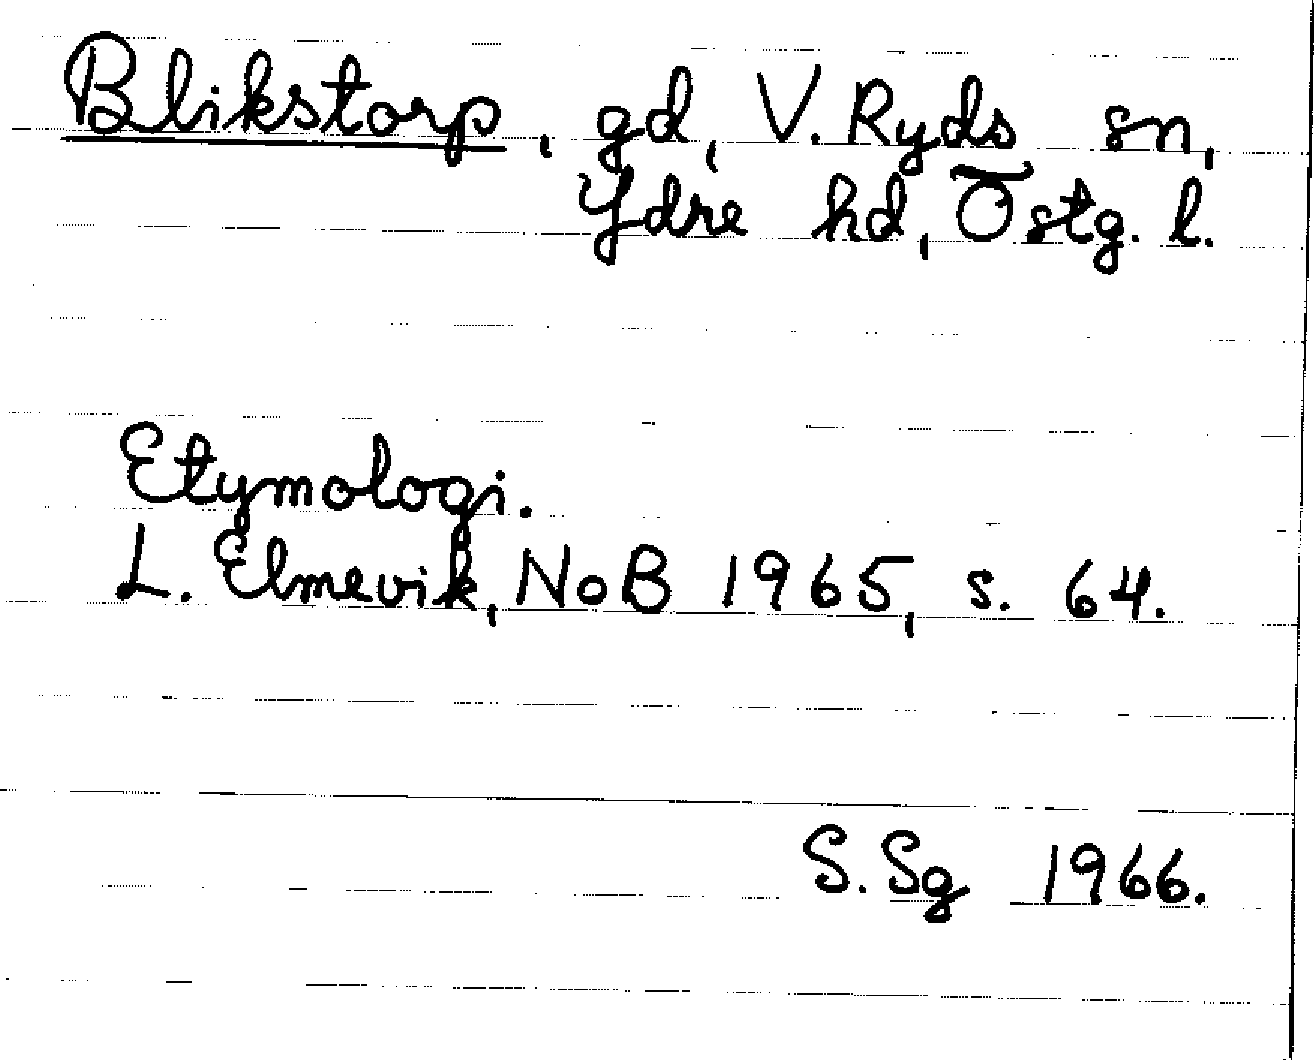 Blikstorp, gd, V. Ryds sn,
Ydre hd, Östg. l.
Etymologi.
L. Elmevik, NoB 1965, s. 64.
S. Sg 1966.